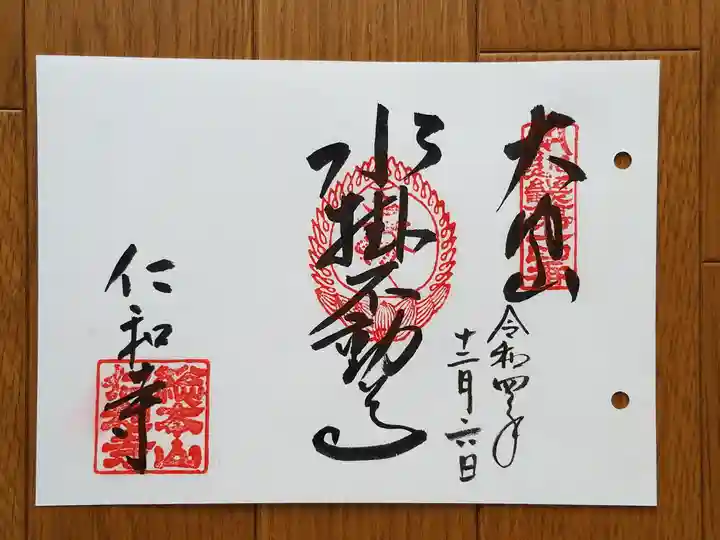 大内山
令和四年
十二月六日
水掛不動尊
仁和寺
總本山
仁和寺